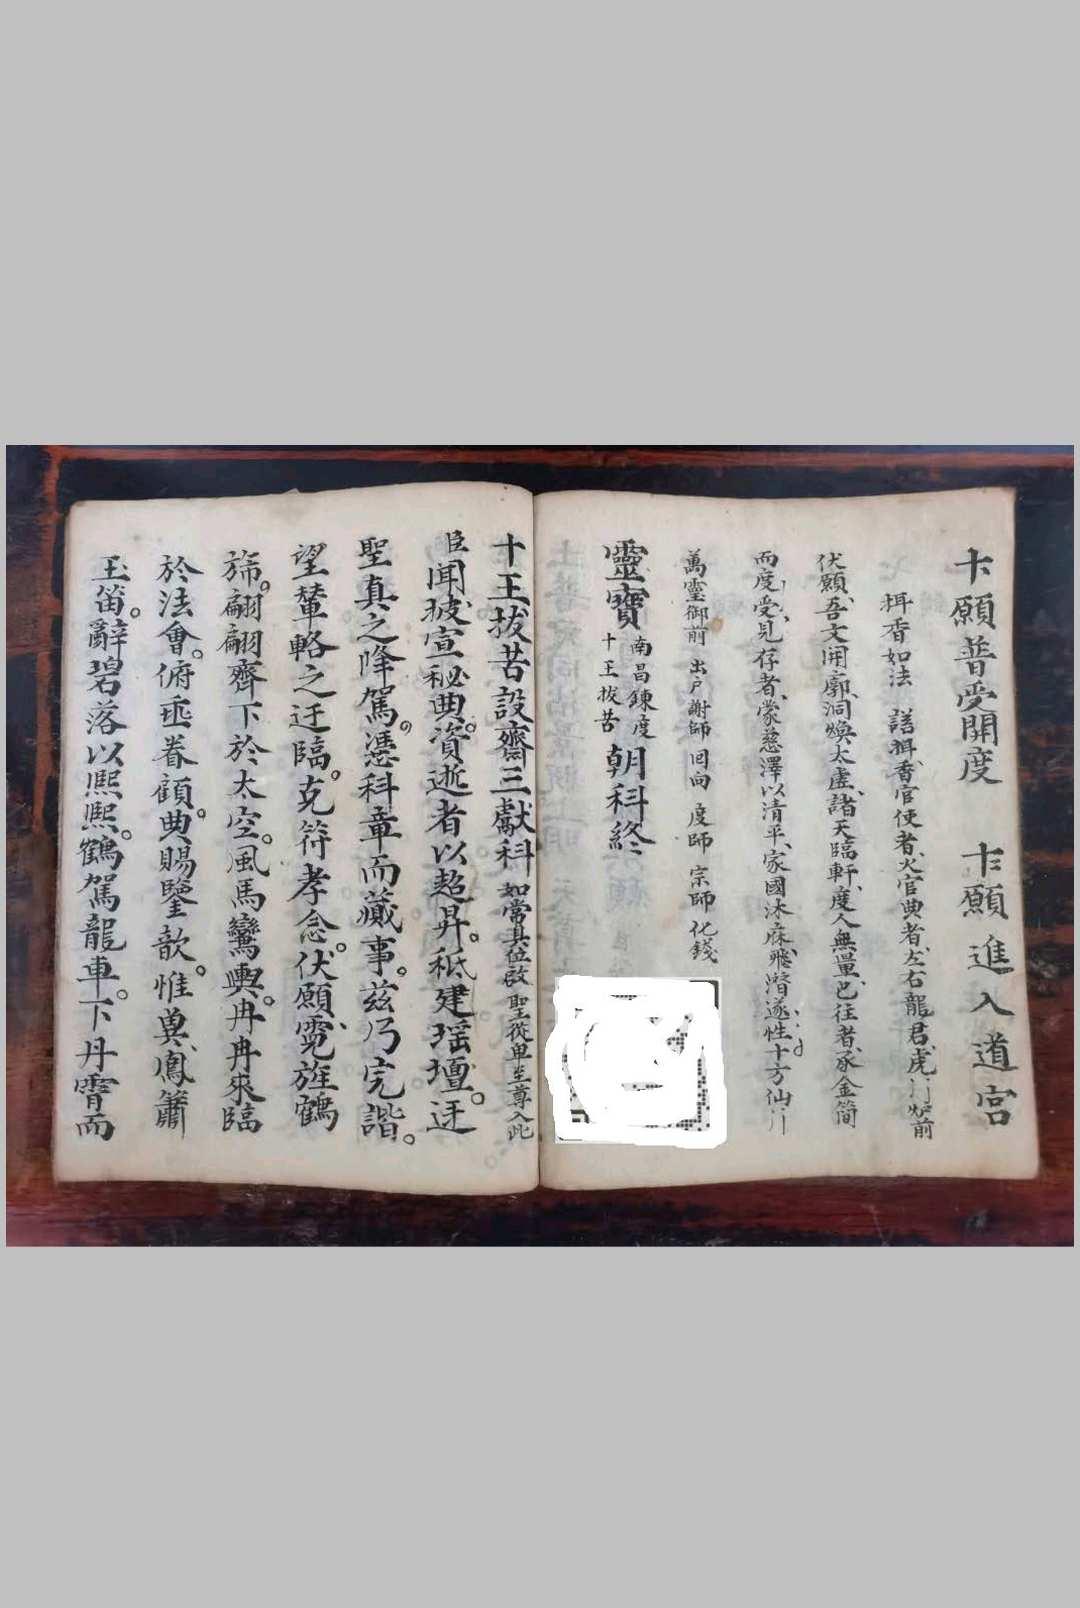 卞願普受開度　卞願進入道宮
揖香如法　謹揖香官使者火官典者左右龍君虎 炉前
伏願吾文開廓洞煥太虛諸天臨軒度人無量已往者承金简
而度受見存者蒙慈澤以清平家國沐庥飛潛遂性十方仙
萬靈御前　出户謝師　回向　度師　宗師　化錢
靈寶 南昌鍊度 十王拔苦 朝科終
十王拔苦設齋三獻科 如常具位啟 聖從卑至尊入此
臣聞披宣秘典。資逝者以超昇。秪建瑶壇。迓
聖真之降駕。憑科章而藏事。兹乃完諧。
望輦輅之迂臨。克符孝念。伏願霓旌鶴
斾。翩翩齊下於太空。風馬鸞輿。冉冉來臨
於法會。俯垂眷顧。典賜鑒歆。惟奠鳳簫
玉笛。辭碧落以熙熙。鶴駕龍車。下丹霄而